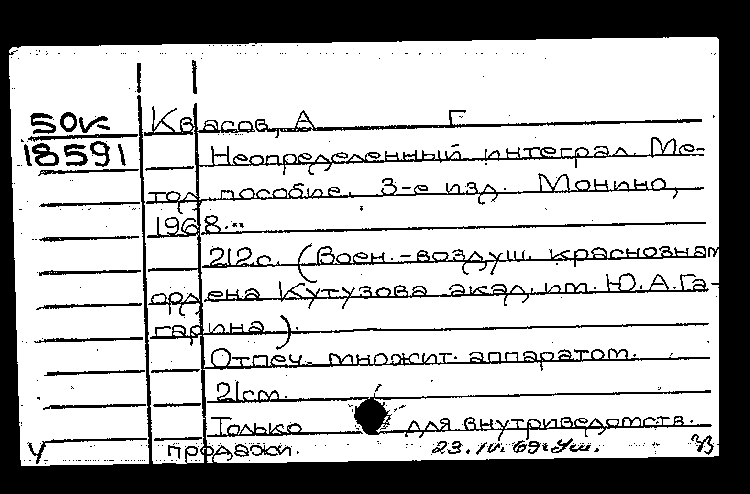 50к Квасов, А Г
18591 Неопределенный интеграл. Ме-
тод. пособие. 3-е изд. Монино,
1968.
212с. (Воен.-воздуш. краснознам
ордена Кутузова акад. им. Ю.А.Га-
гарина).
Отпеч. множит. аппаратом.
21см.
Только для внутриведомств.
продажи. 23.IV.69г.